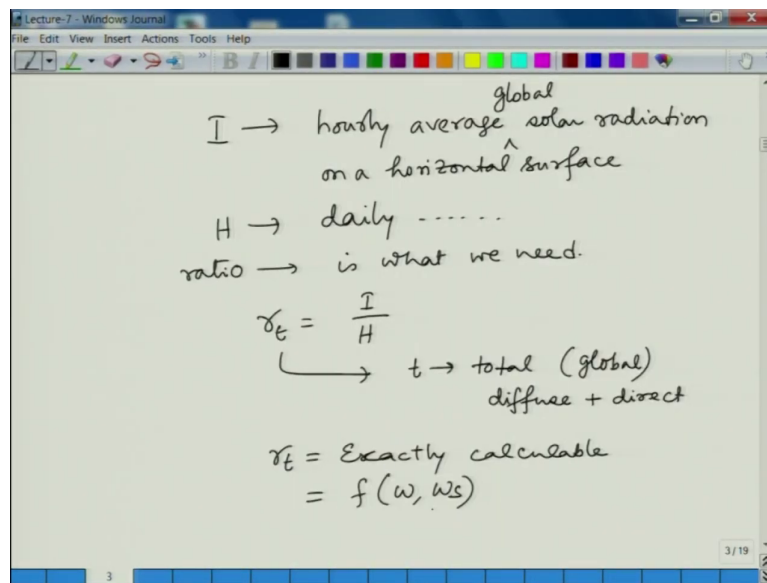 Lecture-7 - Windows Journal
File Edit View Insert Actions Tools Help
B I
global
I → hourly average ^ solar radiation
on a horizontal surface
H → daily ......
ratio → is what we need.
r_t = I/H
t → total (global)
diffuse + direct
r_t = Exactly calculable
= f(ω, ωs)
3/19
3